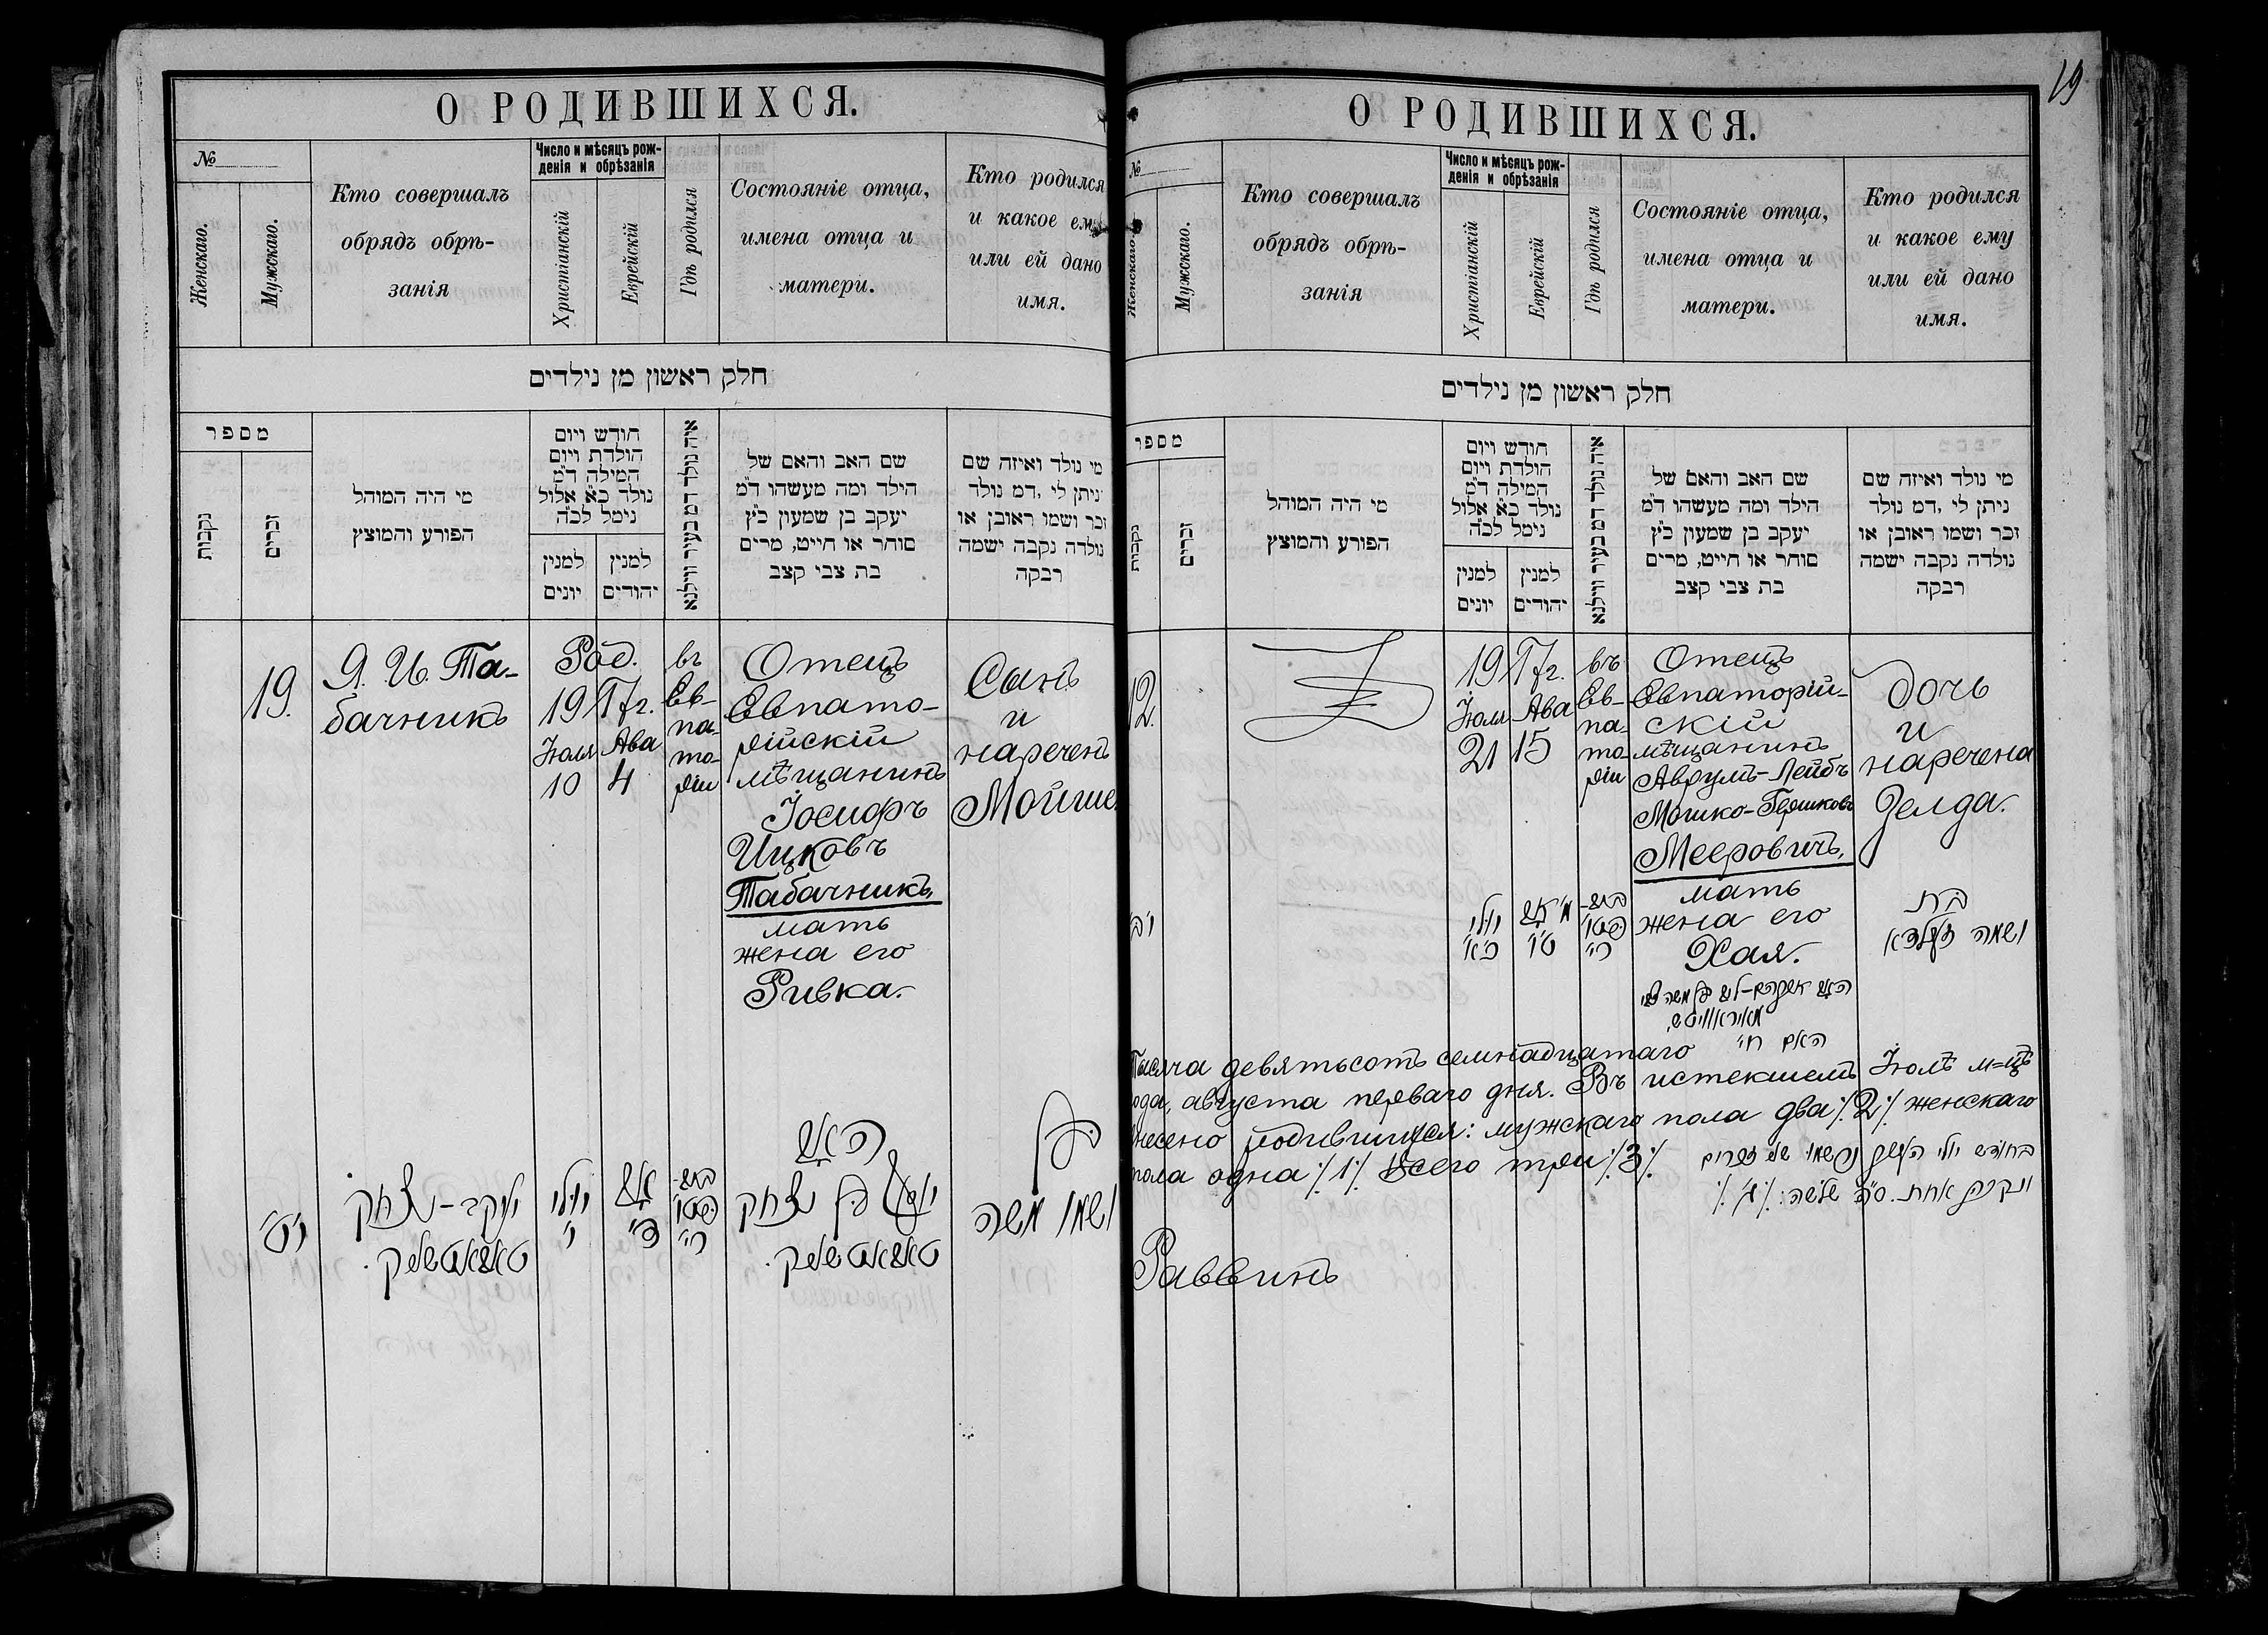 О РОДИВШИХСЯ.
№
Женскаго.
Мужскаго.
Кто совершалъ
обрядъ обрѣ-
занія
Число и мѣсяцъ рож-
денія и обрѣзанія
Христіанскій
Еврейскій
Гдѣ родился
Состояніе отца,
имена отца и
матери.
Кто родился
и какое ему
или ей дано
имя.
חלק ראשון מן נילדים
מספר
נקבות
זכרים
מי היה המוהל
הפורע והמוצץ
חודש ויום
הולדת ויום
המילה ד״מ
נולד כ״א אלול
נימל לכ״ה
למנין
יונים
למנין
יהודים
איה נולד דמ בעיר ווילנא
שם האב והאם של
הילד ומה מעשהו ד״מ
יעקב בן שמעון כ״ץ
סוחר או חייט, מרים
בת צבי קצב
מי נולד ואיזה שם
ניתן לי, דמ נולד
זכר ושמו ראובן או
נולדה נקבה ישמה
רבקה
19.
Я. И. Та-
бачникъ
Род.
1917г.
Іюля Ава
10 4
въ
Ев-
па-
то-
ріи
Отецъ
Евпато-
рійскій
мѣщанинъ
Іосифъ
Ицковъ
Табачникъ,
мать
жена его
Ривка.
Сынъ
и
нареченъ
Мойше.
י״ט
יעקב-יצחק
טאבאטשניק.
יולי
י׳
אב
ד׳
האב
יוסף בן יצחק
טאבאטשניק.
בן
ושמו משה
19
О РОДИВШИХСЯ.
№
Женскаго.
Мужскаго.
Кто совершалъ
обрядъ обрѣ-
занія
Число и мѣсяцъ рож-
денія и обрѣзанія
Христіанскій
Еврейскій
Гдѣ родился
Состояніе отца,
имена отца и
матери.
Кто родился
и какое ему
или ей дано
имя.
חלק ראשון מן נילדים
מספר
נקבות
זכרים
מי היה המוהל
הפורע והמוצץ
חודש ויום
הולדת ויום
המילה ד״מ
נולד כ״א אלול
נימל לכ״ה
למנין
יונים
למנין
יהודים
איה נולד דמ בעיר ווילנא
שם האב והאם של
הילד ומה מעשהו ד״מ
יעקב בן שמעון כ״ץ
סוחר או חייט, מרים
בת צבי קצב
מי נולד ואיזה שם
ניתן לי, דמ נולד
זכר ושמו ראובן או
נולדה נקבה ישמה
רבקה
12.
1917г.
Іюля Ава
21 15
въ
Ев-
па-
то-
ріи
Отецъ
Евпаторій-
скій
мѣщанинъ
Аврумъ-Лейбъ
Мошко-Гершковъ
Мееровичъ,
мать
жена его
Хая.
дочь
и
наречена
Зелда.
י״ב
יולי
כ״א
ט״ו
האם חי׳
בת
ושמה זעלדא
Тысяча девятьсотъ семнадцатаго
года, августа перваго дня. Въ истекшемъ Іюлѣ м=цѣ
внесено родившихся: мужскаго пола два ٪2٪ женскаго
пола одна ٪1٪ всего три ٪3٪
ונקבה אחת. ס״ה שלשה: ٪ג׳٪
Раввинъ